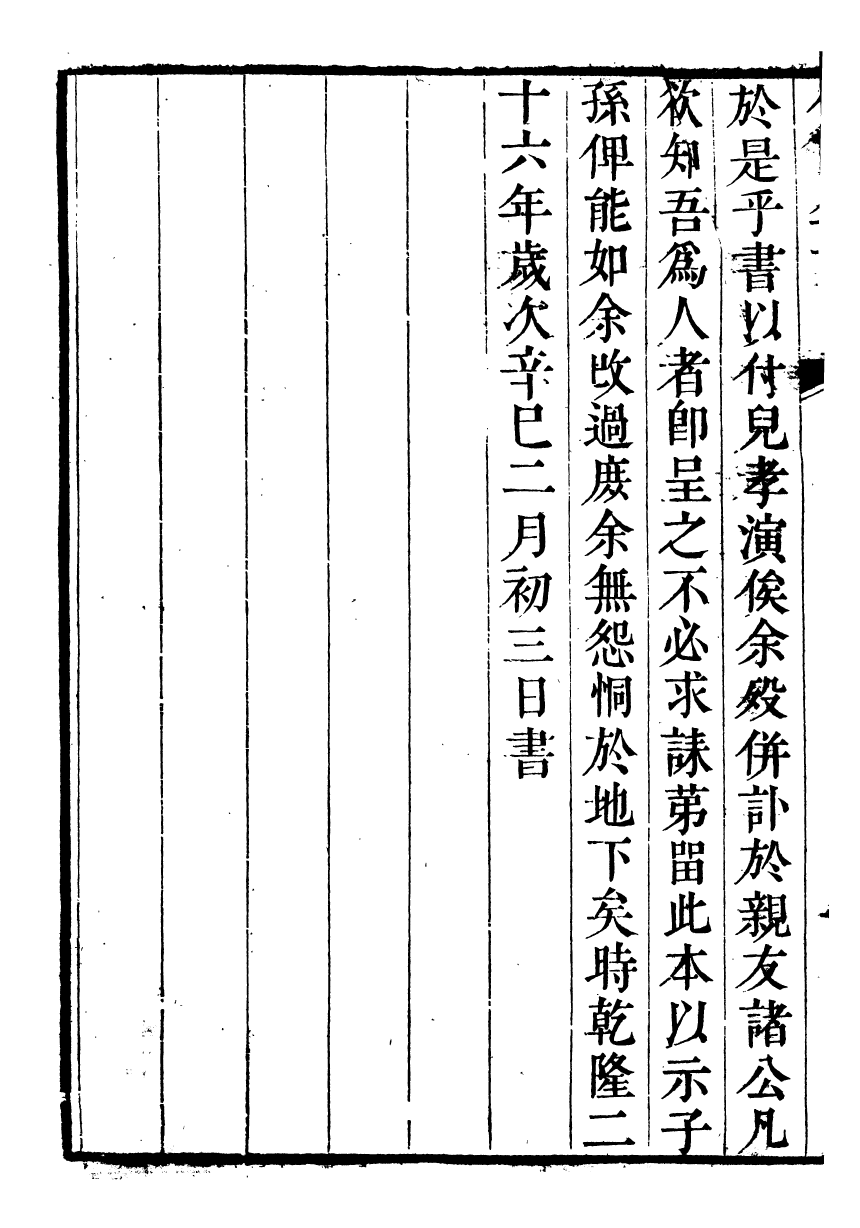 於是乎書以付兒孝演俟余歿併訃於親友諸公凡
欲知吾爲人者卽呈之不必求誄苐畱此本以示子
孫俾能如余改過庻余無怨恫於地下矣時乾隆二
十六年歲次辛巳二月初三日書